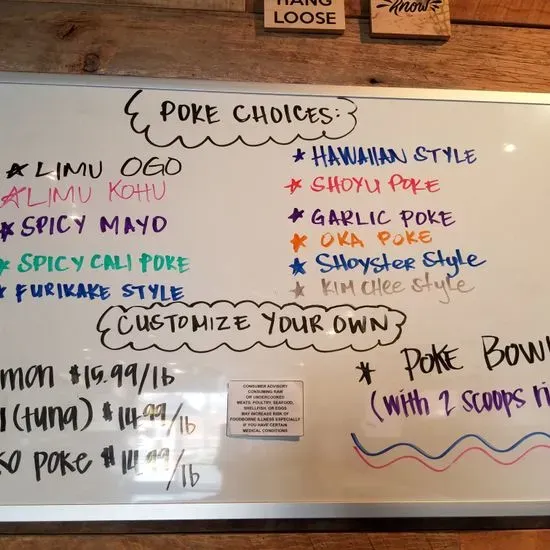 HANG
LOOSE
know
POKE CHOICES:
★ LIMU OGO
★ LIMU KOHU
★ SPICY MAYO
★ SPICY CALI POKE
★ FURIKAKE STYLE
★ HAWAIIAN STYLE
★ SHOYU POKE
★ GARLIC POKE
★ OKA POKE
★ SHOYSTER STYLE
★ KIM CHEE STYLE
CUSTOMIZE YOUR OWN
mon $15.99/lb
(tuna) $14.99/lb
KO POKE $14.99/lb
CONSUMER ADVISORY
CONSUMING RAW
OR UNDERCOOKED
MEATS, POULTRY, SEAFOOD,
SHELLFISH, OR EGGS
MAY INCREASE RISK OF
FOODBORNE ILLNESS ESPECIALLY
IF YOU HAVE CERTAIN
MEDICAL CONDITIONS
* POKE BOWL
(with 2 scoops ri